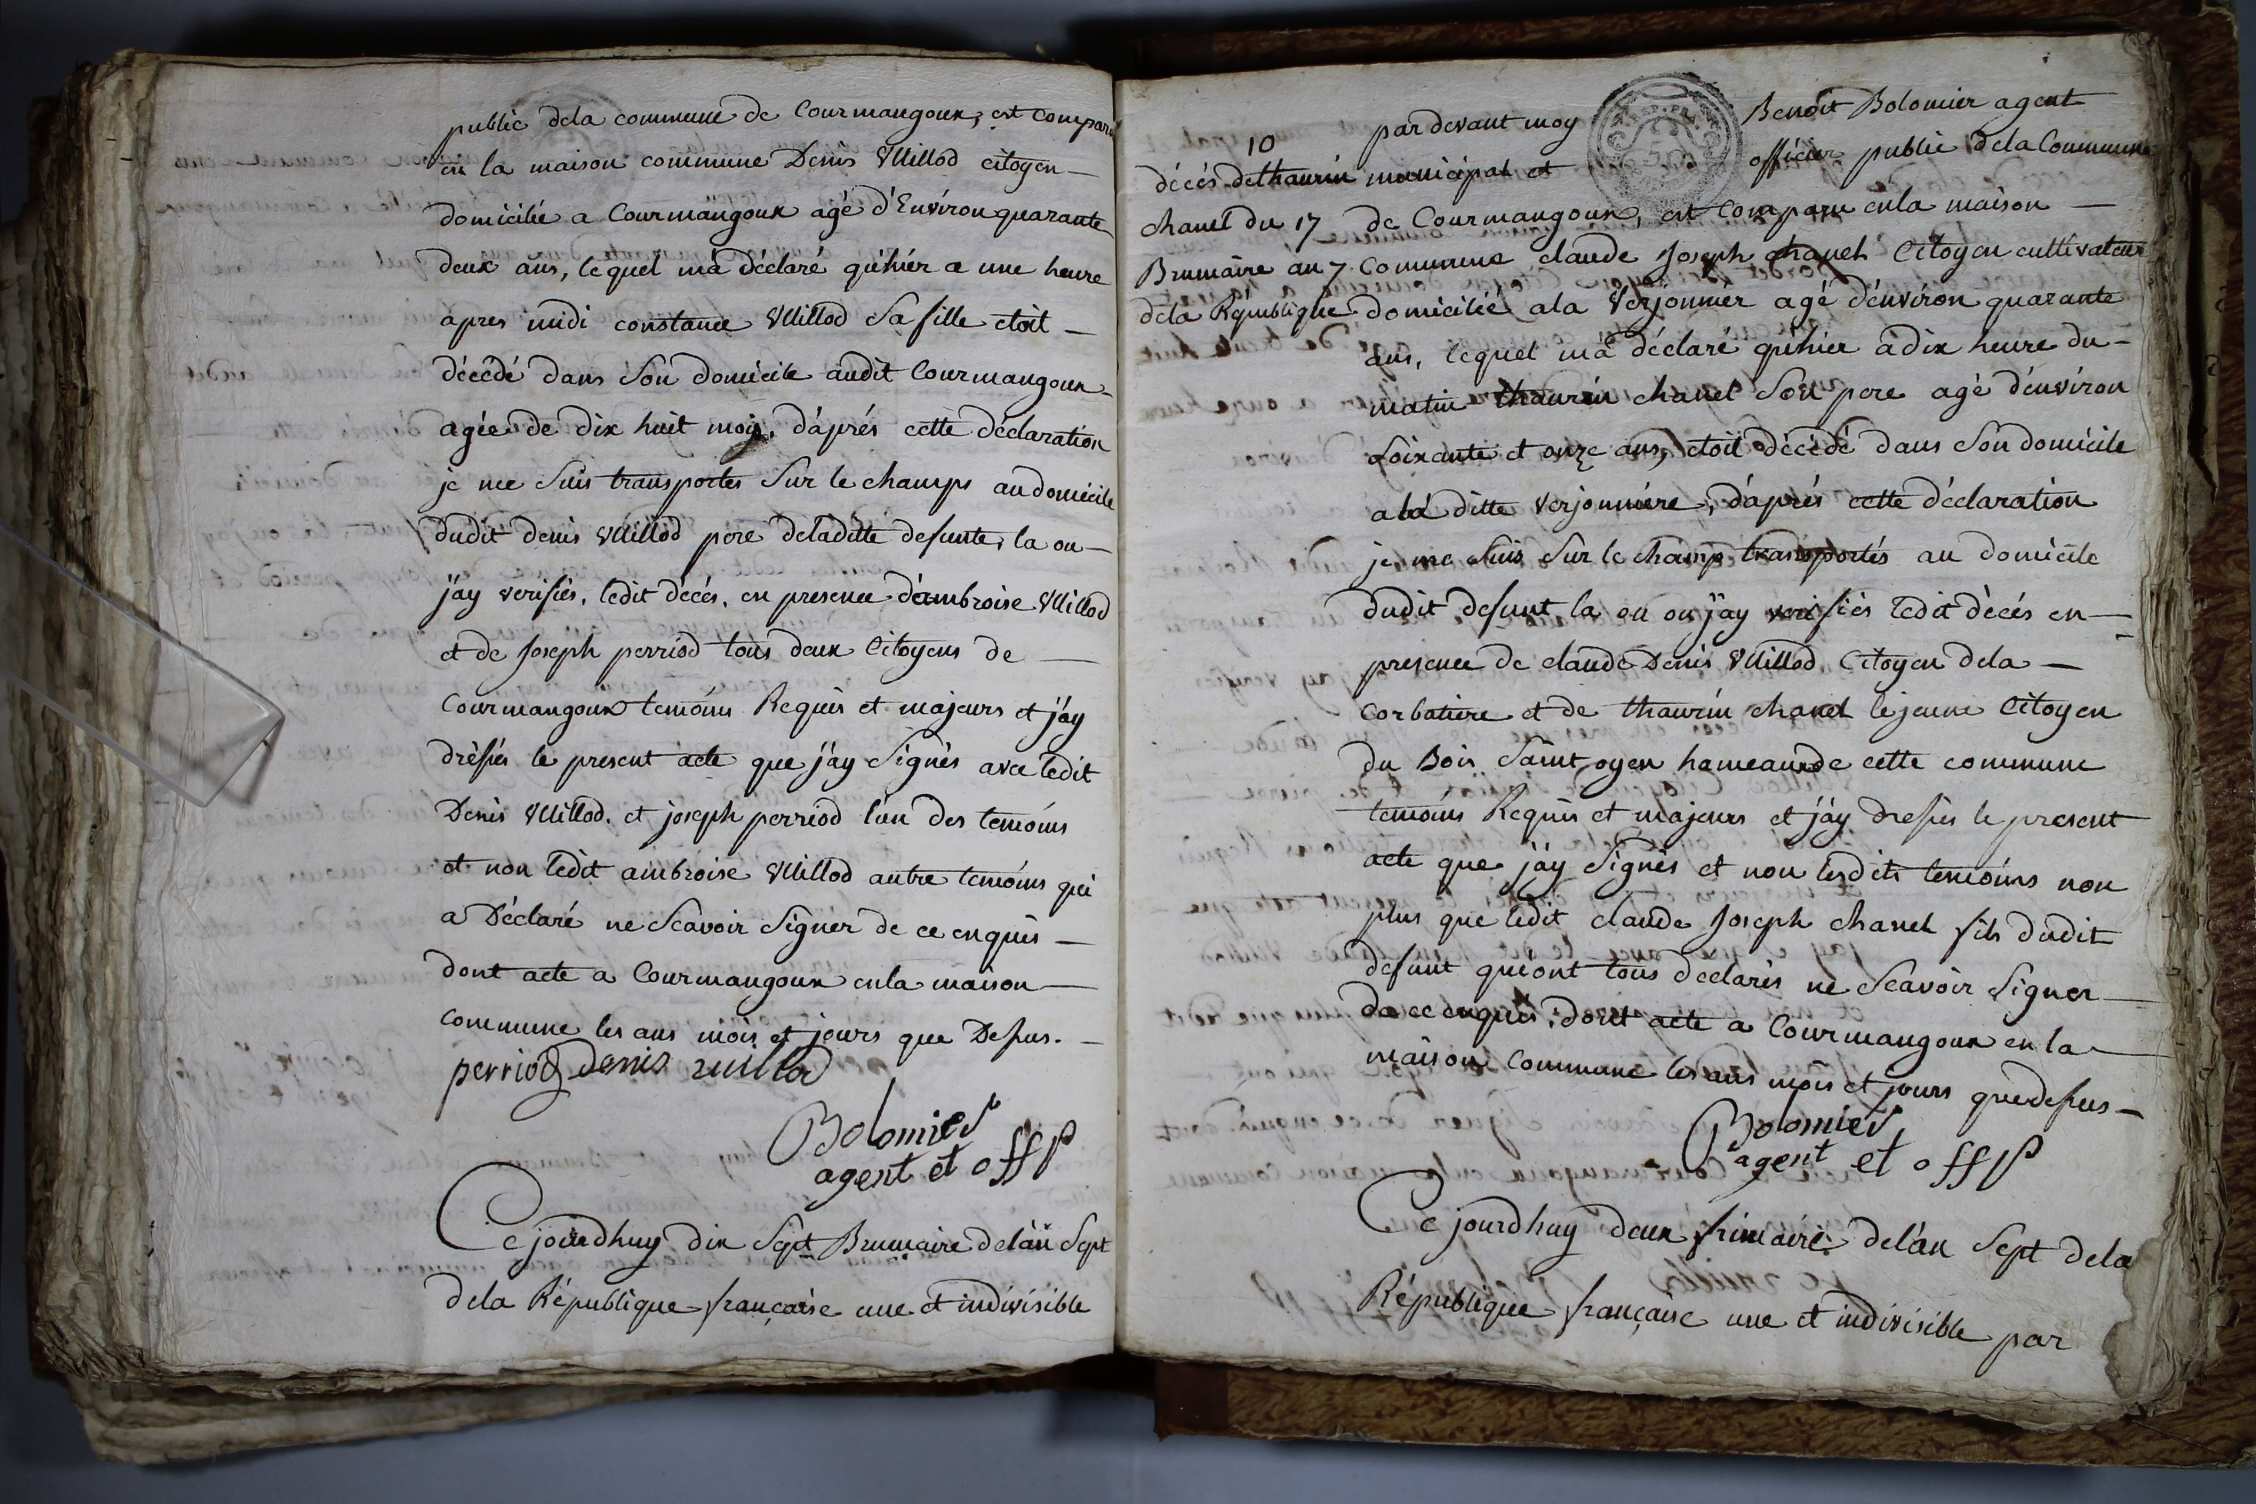 public dela commune de Courmangoux, est comparu
en la maison commune Denis Vuillod citoyen
domicilié a Courmangoux agé d'Environ quarante
deux ans, lequel m'a déclaré qu'hiér a une heure
apres midi constance Vuillod Sa fille étoit
décédé dans Son domicile audit Courmangoux
agée de dix huit mois, d'aprés cette déclaration
je me Suis transportés Sur le champs au domicile
dudit denis Vuillod pere de laditte defunte, la ou
j'ay verifiés, ledit décés, en presence d'ambroise Vuillod
et de Joseph perriod tous deux Citoyens de
Courmangoux temoins Requis et majeurs et j'ay
dréssés le present acte que j'ay Signés avec ledit
Denis Vuillod, et joseph perriod l'un des temoins
et non ledit ambroise Vuillod autre temoins qui
a Déclaré ne Scavoir Signer de ce enquis
dont acte a Courmangoux en la maison
commune les ans mois et jours que Dessus.
perriod denis vuillod
Bolomier
agent et off p
Ce jourdhuy dix Sept Brumaire de l'an Sept
dela République française une et indivisible
par devant moy Benoit Bolomier agent
10
décés de thaurin municipal et officier public dela Commune
chanel du 17 de Courmangoux, est Comparu en la maison
Brumaire an 7 Commune claude Joseph chanel Citoyen cultivateur
dela République domicilié a la Verjonnier agé d'environ quarante
ans, lequel m'a déclaré qu'hier a dix heure du
matin thaurin chanel Son pere agé d'environ
Soixante et onze ans, étoit décédé dans Son domicile
a la ditte Verjonniere, d'aprés cette déclaration
je me Suis Sur le champ transportés au domicile
dudit defunt, la ou ou j'ay verifiés ledit décés en
presence de claude Denis Vuillod Citoyen dela
Corbatiere et de thaurin chanel le jeune Citoyen
du Bois Saint oyen hameaux de cette commune
temoins Requis et majeurs et j'ay dressés le present
acte que j'ay Signés et non lesdits temoins non
plus que ledit claude Joseph chanel fils dudit
defunt qui ont tous declarés ne Scavoir Signer
de ce enquis, dont acte a Courmangoux en la
maison Commune les ans mois et jours que dessus
Bolomier
agent et off p
Ce jourdhuy deux frimaire de l'an Sept dela
République française une et indivisible par